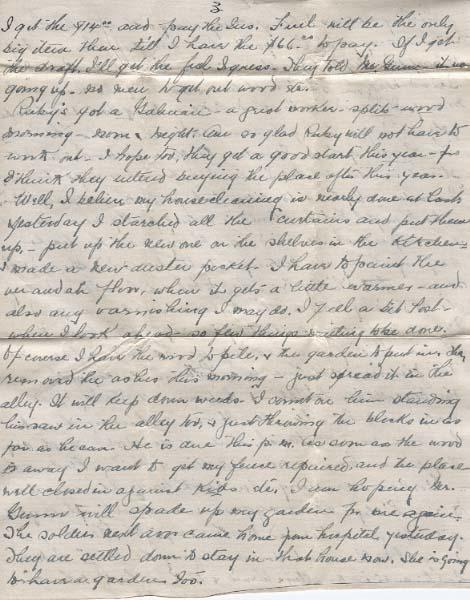 3
I get the $14.00 and - pay the Ins. Fuel will be the only
big item then till I have the $66.00 to pay. If I get
the draft, I'll get the fuel I guess. They told Mr. Gunn - it was
going up - no men to get out wood etc.
Ruby's got a - a great worker - splits wood
morning - noon & night. Am so glad Ruby will not have to
work out - I hope too, they get a good start this year - for
I think they intend buying the place after this year.
Well, I believe my housecleaning is nearly done at last
yesterday I starched all the curtains and put them
up, - put up the new one on the shelves in the kitchen -
I made a new duster pocket. I have to paint the
verandah floor, when it gets a little warmer - and
also any varnishing I may do. I feel a bit lost
when I look ahead - so few things waiting to be done.
Of course I have the wood to pile, & the garden to put in.
removed the ashes this morning - just spread it in the
alley. It will keep down weeds. I him standing
his saw in the alley too, & just throwing the blocks in as
far as he can. He is due this p.m. As soon as the wood
is away I want to get my fence repaired, and the place
well closed in against kids etc. I am hoping Mr.
Gunn will spade up my garden for me again.
The soldier next door came home from hospital yesterday.
They are settled down to stay in that house now. She is going
to have a garden too.